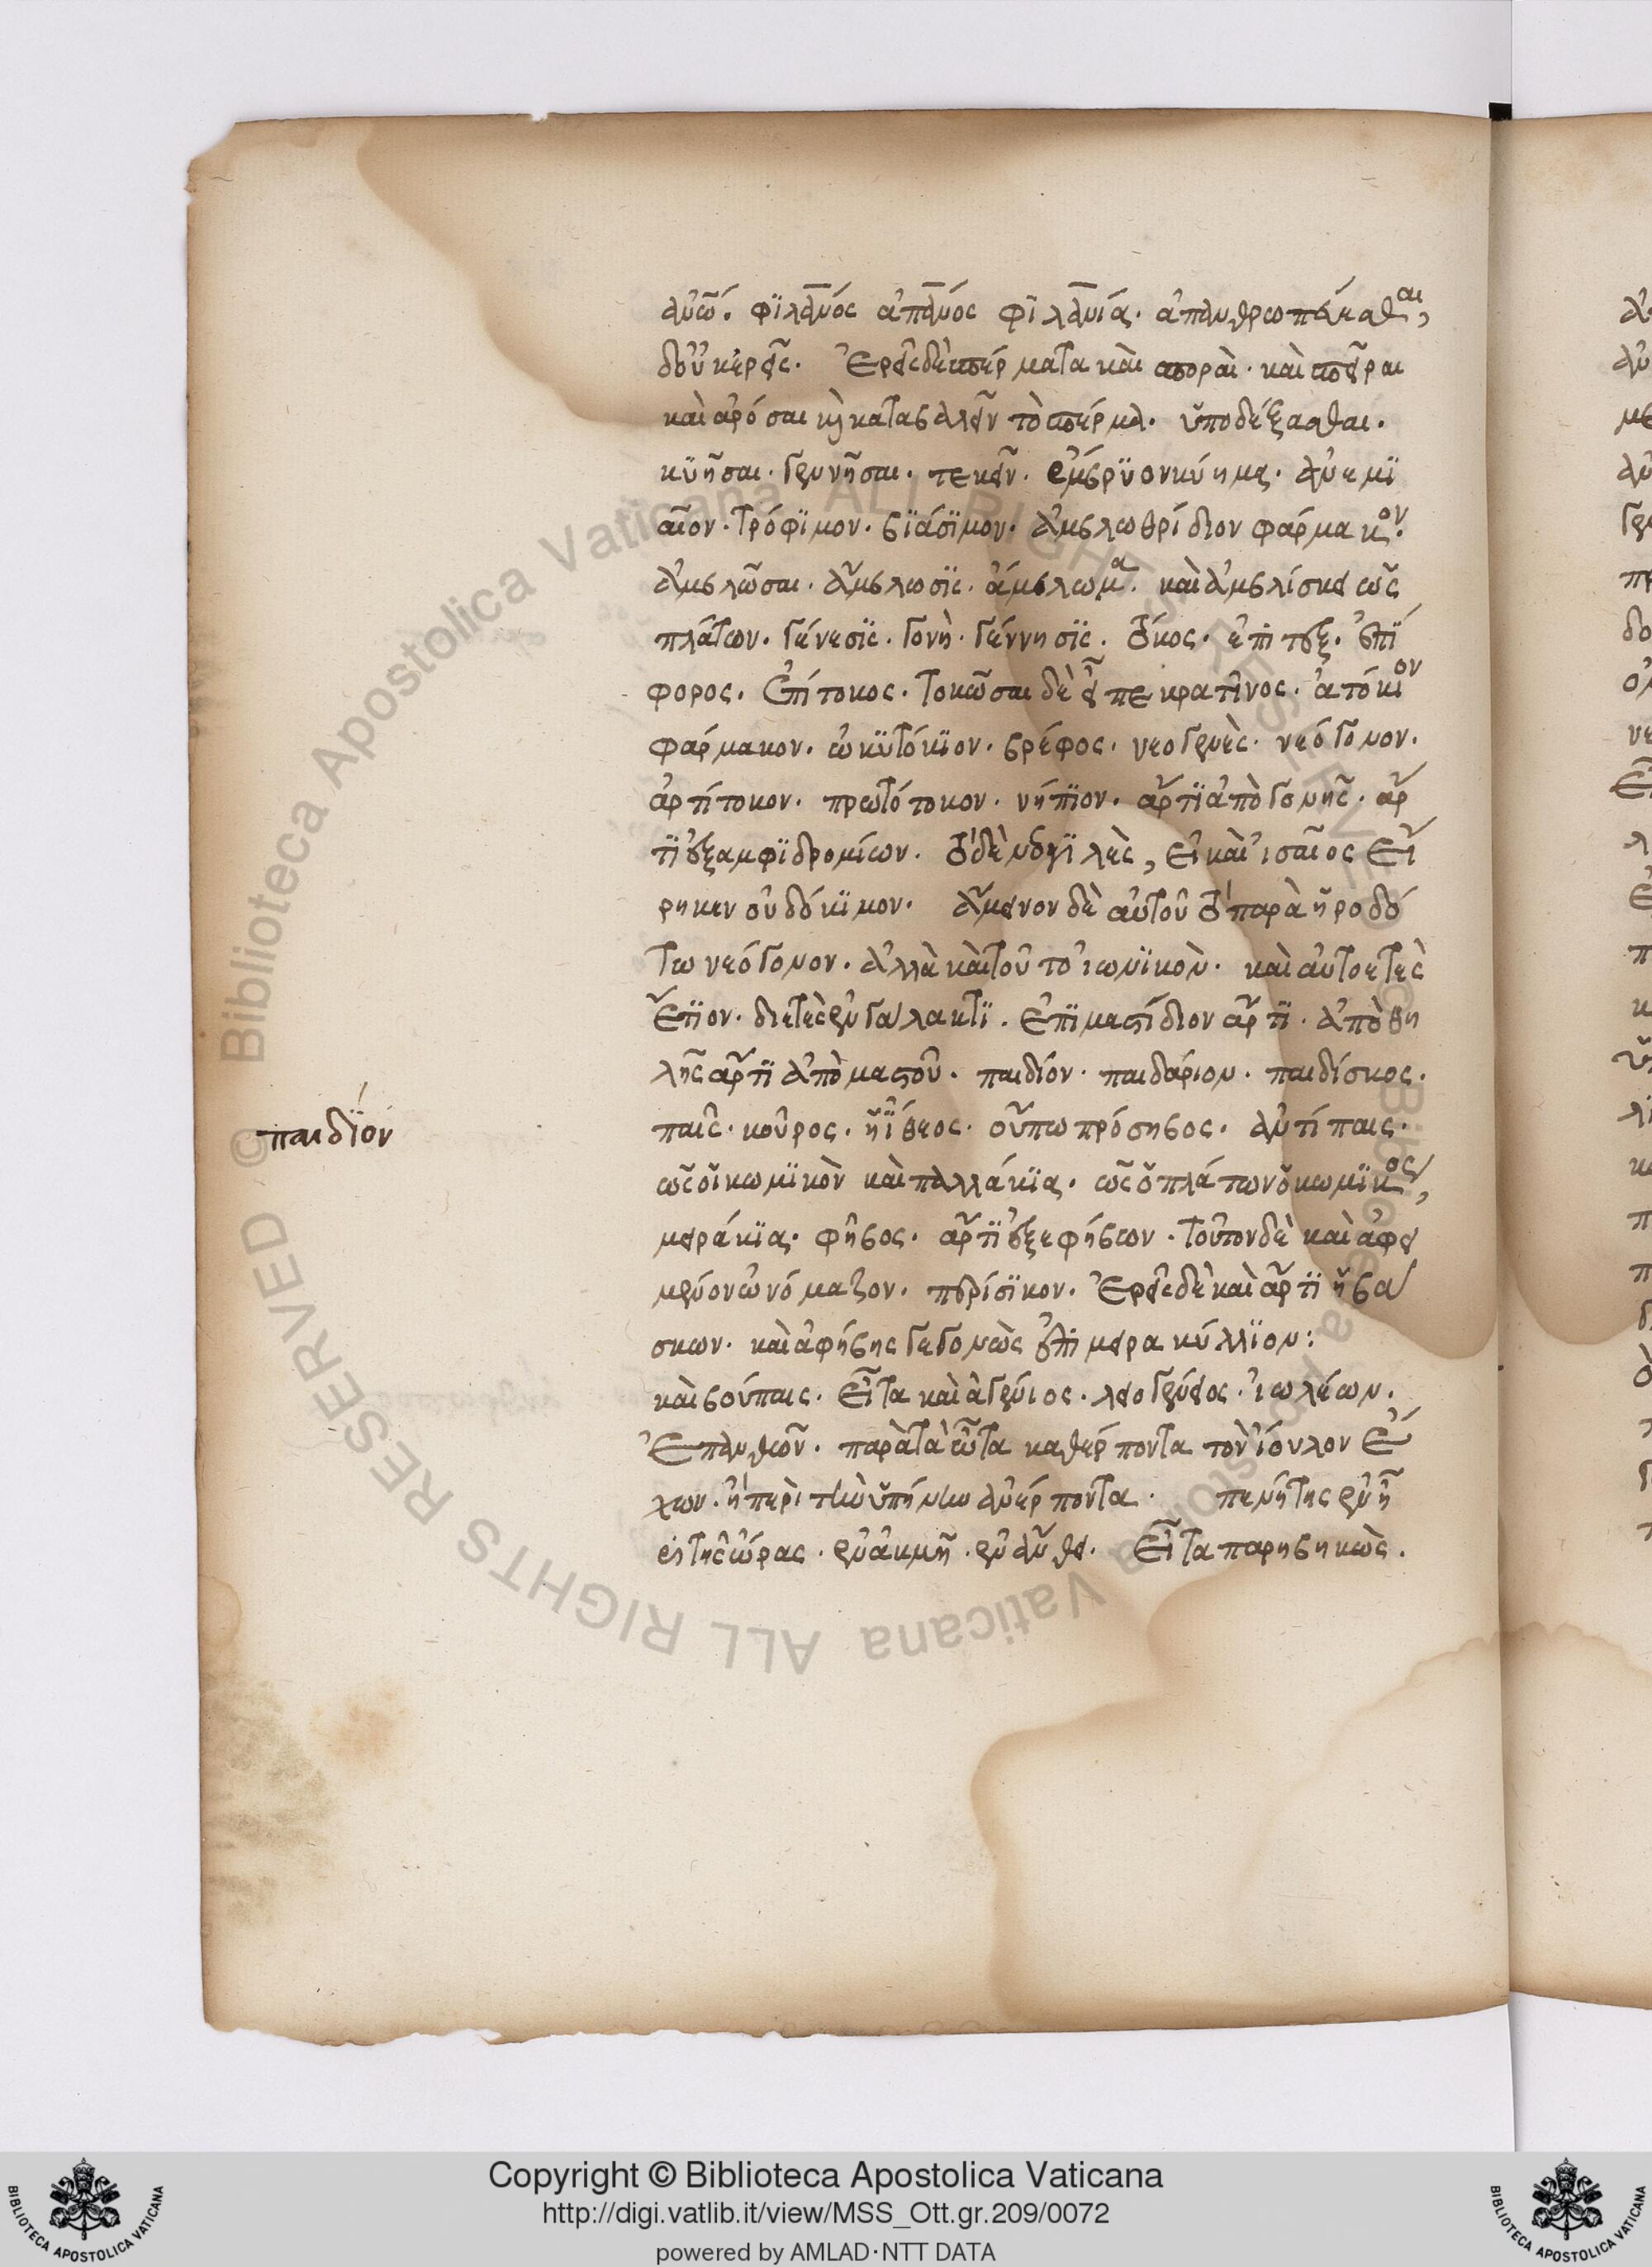 ἀνῶν. φϊλανος ἀπανος φϊλανία. ἀπανθρωπεύεσθαι,
δουκερεῖς. Ἐρεῖς δὲ σπέρματα καὶ σποραὶ. καὶ σπεῖραι
καὶ ἀρόσαι καὶ καταβαλεῖν τὸ σπέρμα. ὑποδέξασθαι.
κϋῆσαι. γεννῆσαι. τεκεῖν. ἐμβρϋον κύημα. ἀνεμϊ
αῖον. τρόφϊμον. βϊάσϊμον. ἀμβλωθρίδιον φάρμακον.
ἀμβλῶσαι. ἄμβλωσϊς. ἄμβλωμα. καὶ ἀμβλίσκει ὡς
πλάτων. γένεσϊς. γονὴ. γέννησϊς. τόκος. ἐπϊ
φορος. Ἐπίτοκος. τοκῶσαι δὲ εἶπε κρατῖνος. ἀτόκιον
φάρμακον. ὠκϋτόκϊον. βρέφος. νεογενὲς. νεόγονον.
ἀρτίτοκον. πρωτότοκον. νήπϊον. ἄρτϊ ἀπὸ γονῆς. ἄρ
τϊ ἐξ αμφϊδρομίων. τὸ δὲ νεογϊλὲς, εἰ καὶ ἰσαῖος εἴ
ρηκεν οὐ δόκϊμον. ἄμεινον δὲ αὐτοῦ τὸ παρὰ ἡροδό
τω νεόγονον. ἀλλὰ καὶ τοῦτο ἰωνϊκὸν. καὶ αὐτοετὲς
ἔτϊον. διετὲς ἐν γάλακτϊ. Ἐπϊμαστίδιον ἄρτϊ. ἀπὸ θη
λῆς ἄρτϊ ἀπὸ μαστοῦ. παιδίον. παιδάριον. παιδίσκος.
παιδϊόν
παῖς. κοῦρος. ἠΐθεος. οὔπω πρόσηβος. ἀντίπαις.
ὡς οἱ κωμϊκὸν καὶ παλλάκϊα. ὡς ὁ πλάτων ὁ κωμϊκος,
μειράκϊα. φῆβος. ἄρτϊ ἐξ εφήβων. τοῦτον δὲ καὶ ἀφει
μένον ὠνόμαζον. περίσϊκον. Ἐρεῖς δὲ καὶ ἄρτϊ ἡβά
σκων. καὶ ἀφήβης γεγονὼς ἐπὶ μειρακύλλϊον:
καὶ βούπαις. Εἶτα καὶ ἀγένιος. λειογένειος. ἰωλέων.
Ἐπανθῶν. παρὰ τὰ ὦτα καθέρποντα τὸν ἴουλον ἔ
χων. ἢ περὶ τὴν ὑπήνην ἀνέρποντα. πενήτης ἐν ἧ
ἐν τῆς ὥρας. ἐν ἀκμῆ. ἐν ἄνθει. Εἶτα παρηβηκὼς.
Copyright © Biblioteca Apostolica Vaticana
http://digi.vatlib.it/view/MSS_Ott.gr.209/0072
powered by AMLAD·NTT DATA